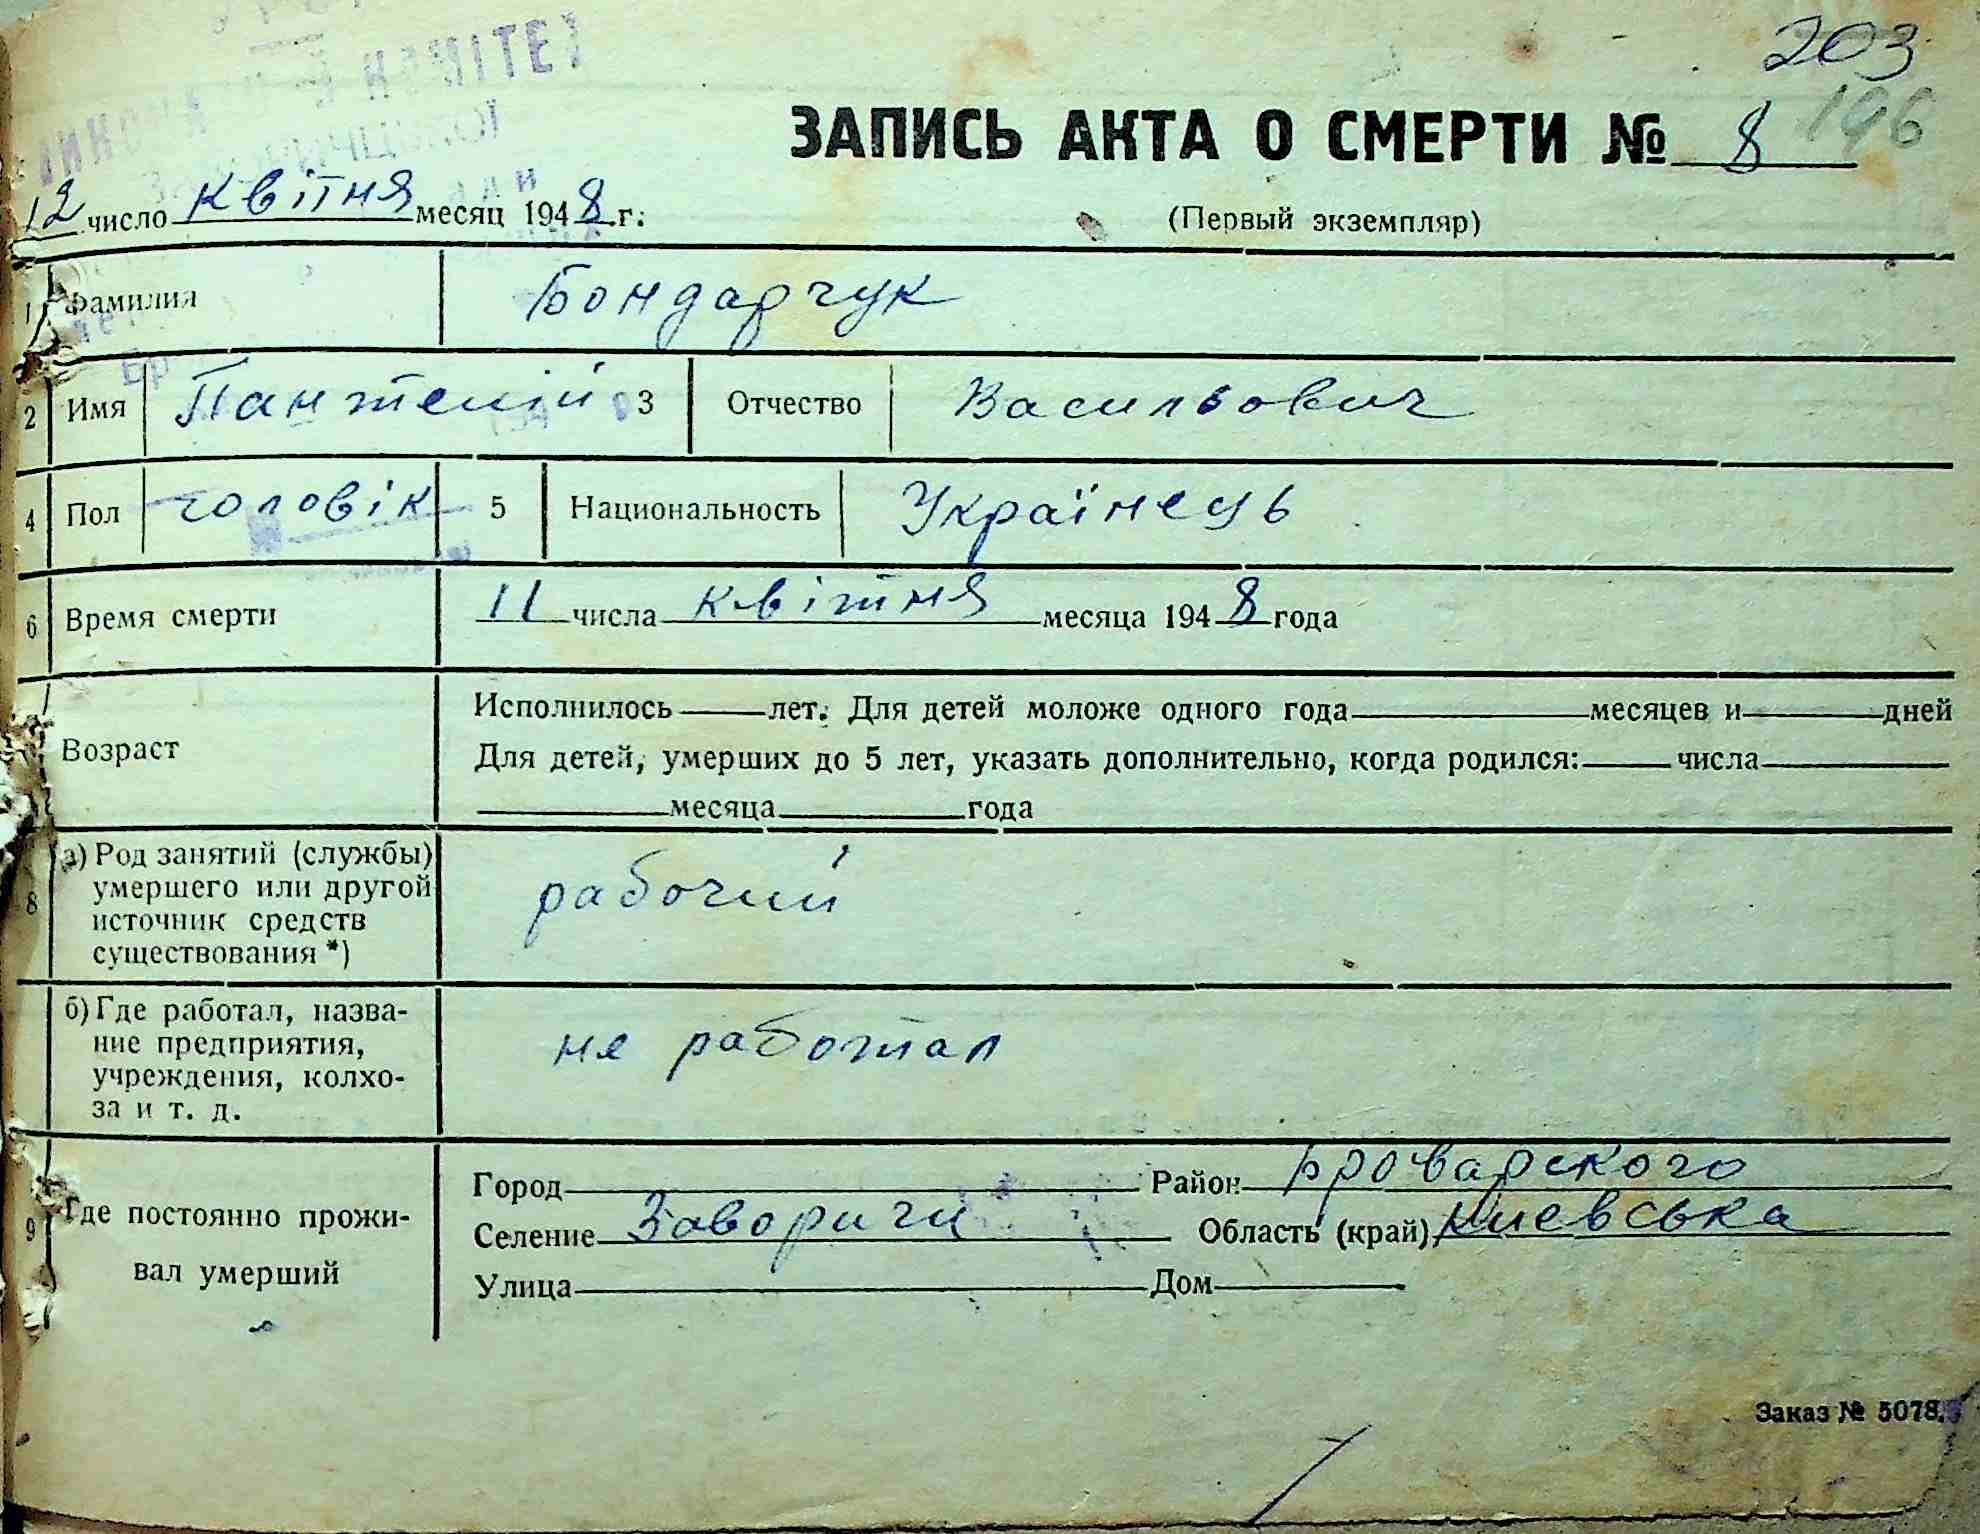 203
196
ЗАПИСЬ АКТА О СМЕРТИ № 8
12 число квітня месяц 1948 г.
(Первый экземпляр)
1 Фамилия Бондарчук
2 Имя Пантелій 3 Отчество Васильович
4 Пол чоловік 5 Национальность Українець
6 Время смерти 11 числа квітня месяца 1948 года
Возраст
Исполнилось лет. Для детей моложе одного года месяцев и дней
Для детей, умерших до 5 лет, указать дополнительно, когда родился: числа
месяца года
8 а) Род занятий (службы)
умершего или другой
источник средств
существования *)
рабочий
б) Где работал, назва-
ние предприятия,
учреждения, колхо-
за и т. д.
не работал
9 Где постоянно прожи-
вал умерший
Город Район Броварского
Селение Заворичи Область (край) Киевська
Улица Дом
Заказ № 5078.